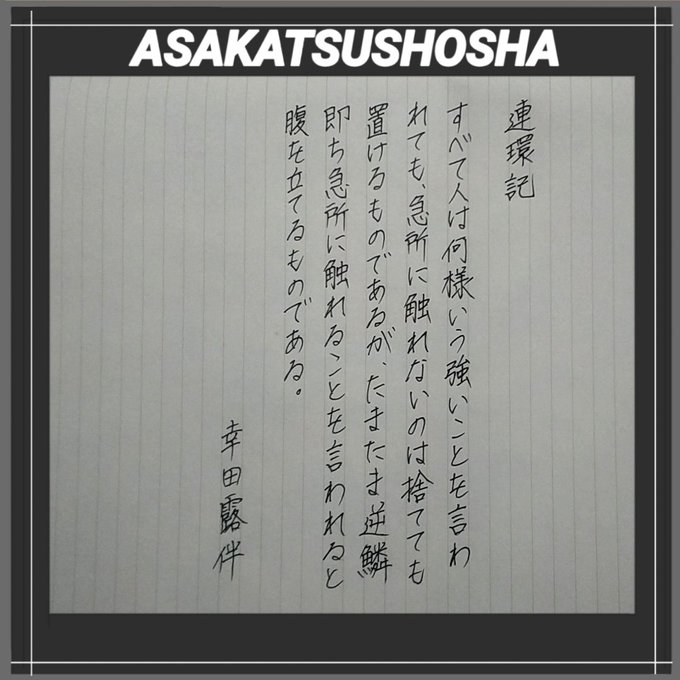 ASAKATSUSHOSHA
連環記
すべて人は何様いう強いことを言わ
れても、急所に触れないのは捨てても
置けるものであるが、たまたま逆鱗
即ち急所に触れることを言われると
腹を立てるものである。
幸田露伴